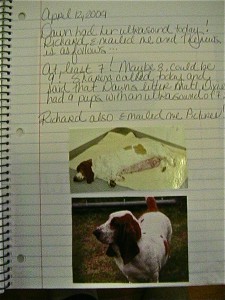 April 12, 2009
Dawn had her ultrasound today!
Richard E mailed me and
is as follows:::
At least 7! Maybe 8, could be
9! called today and
said that Dawns litter
had 9 pups with an ultrasound of 7.
Richard also E mailed me Pictures!